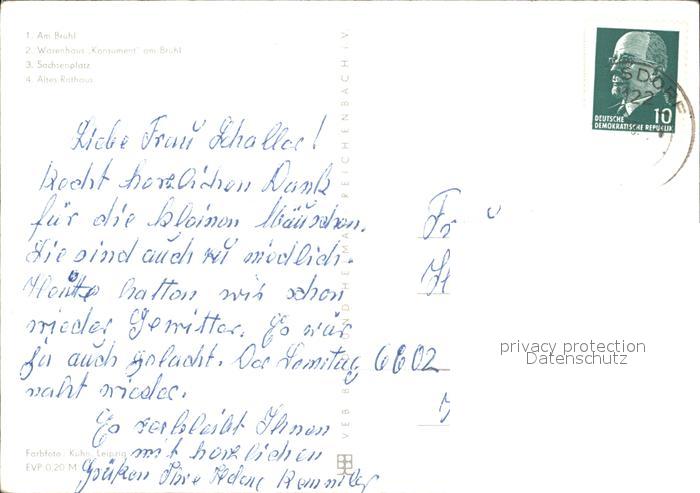 1. Am Brühl
2. Warenhaus „Konsument“ am Brühl
3. Sachsenplatz
4. Altes Rathaus
DEUTSCHE
DEMOKRATISCHE REPUBLIK
10
Liebe Frau Schaller!
Recht herzlichen Dank
für die kleinen Mäuschen.
Sie sind auch zu niedlich.
Heute hatten wir schon
wieder Gewitter. Es war
ja auch gelacht. Der Samstag
naht wieder.
Es verbleibt Ihnen
mit herzlichen
Grüßen Ihre
Fr
6602
VEB BILD UND HEIMAT REICHENBACH i.V.
Farbfoto: Kuhn, Leipzig
EVP 0,20 M
privacy protection
Datenschutz